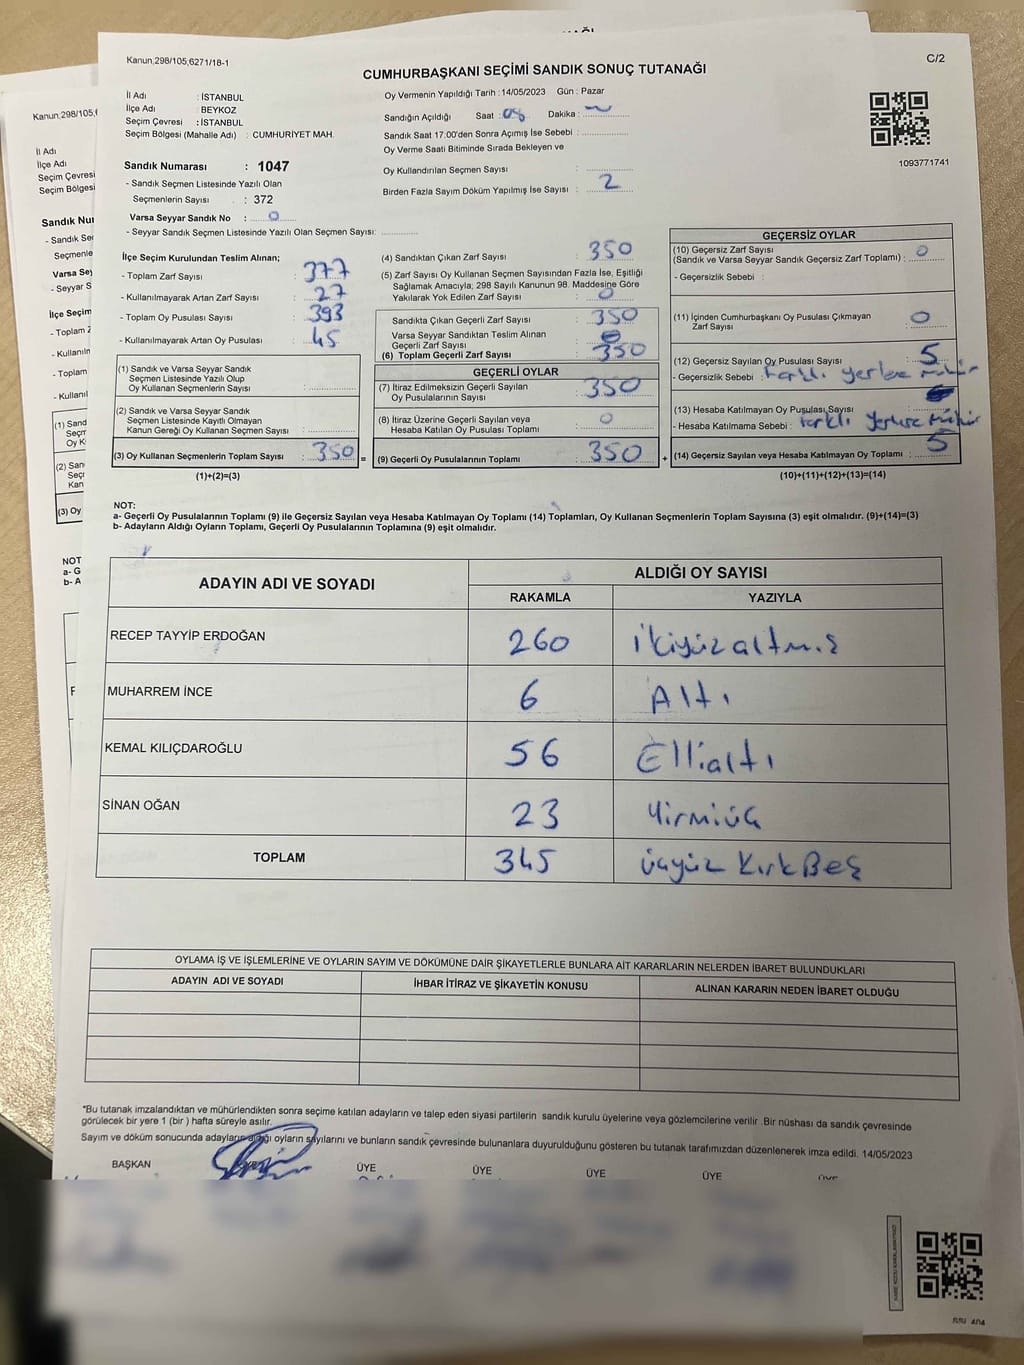 Kanun,298/105,6271/18-1
C/2
CUMHURBAŞKANI SEÇİMİ SANDIK SONUÇ TUTANAĞI
İl Adı : İSTANBUL
İlçe Adı : BEYKOZ
Seçim Çevresi : İSTANBUL
Seçim Bölgesi (Mahalle Adı) : CUMHURİYET MAH.
Sandık Numarası : 1047
- Sandık Seçmen Listesinde Yazılı Olan
Seçmenlerin Sayısı : 372
Varsa Seyyar Sandık No : 0
- Seyyar Sandık Seçmen Listesinde Yazılı Olan Seçmen Sayısı:
Oy Vermenin Yapıldığı Tarih : 14/05/2023 Gün : Pazar
Sandığın Açıldığı Saat : 08 Dakika :
Sandık Saat 17:00'den Sonra Açımış İse Sebebi :
Oy Verme Saati Bitiminde Sırada Bekleyen ve
Oy Kullandırılan Seçmen Sayısı :
Birden Fazla Sayım Döküm Yapılmış İse Sayısı : 2
1093771741
İlçe Seçim Kurulundan Teslim Alınan;
- Toplam Zarf Sayısı : 377
- Kullanılmayarak Artan Zarf Sayısı : 27
- Toplam Oy Pusulası Sayısı : 393
- Kullanılmayarak Artan Oy Pusulası : 45
(1) Sandık ve Varsa Seyyar Sandık
Seçmen Listesinde Yazılı Olup
Oy Kullanan Seçmenlerin Sayısı :
(2) Sandık ve Varsa Seyyar Sandık
Seçmen Listesinde Kayıtlı Olmayan
Kanun Gereği Oy Kullanan Seçmen Sayısı :
(3) Oy Kullanan Seçmenlerin Toplam Sayısı : 350 =
(1)+(2)=(3)
(4) Sandıktan Çıkan Zarf Sayısı : 350
(5) Zarf Sayısı Oy Kullanan Seçmen Sayısından Fazla İse, Eşitliği
Sağlamak Amacıyla; 298 Sayılı Kanunun 98. Maddesine Göre
Yakılarak Yok Edilen Zarf Sayısı : 0
Sandıkta Çıkan Geçerli Zarf Sayısı : 350
Varsa Seyyar Sandıktan Teslim Alınan
Geçerli Zarf Sayısı : 0
(6) Toplam Geçerli Zarf Sayısı : 350
GEÇERLİ OYLAR
(7) İtiraz Edilmeksizin Geçerli Sayılan
Oy Pusulalarının Sayısı : 350
(8) İtiraz Üzerine Geçerli Sayılan veya
Hesaba Katılan Oy Pusulası Toplamı : 0
(9) Geçerli Oy Pusulalarının Toplamı : 350 +
GEÇERSİZ OYLAR
(10) Geçersiz Zarf Sayısı
(Sandık ve Varsa Seyyar Sandık Geçersiz Zarf Toplamı) : 0
- Geçersizlik Sebebi :
(11) İçinden Cumhurbaşkanı Oy Pusulası Çıkmayan
Zarf Sayısı : 0
(12) Geçersiz Sayılan Oy Pusulası Sayısı : 5
- Geçersizlik Sebebi : Farklı yerlere mühür
(13) Hesaba Katılmayan Oy Pusulası Sayısı
- Hesaba Katılmama Sebebi : Farklı yerlere mühür
(14) Geçersiz Sayılan veya Hesaba Katılmayan Oy Toplamı : 5
(10)+(11)+(12)+(13)=(14)
NOT:
a- Geçerli Oy Pusulalarının Toplamı (9) ile Geçersiz Sayılan veya Hesaba Katılmayan Oy Toplamı (14) Toplamları, Oy Kullanan Seçmenlerin Toplam Sayısına (3) eşit olmalıdır. (9)+(14)=(3)
b- Adayların Aldığı Oyların Toplamı, Geçerli Oy Pusulalarının Toplamına (9) eşit olmalıdır.
ADAYIN ADI VE SOYADI ALDIĞI OY SAYISI
RAKAMLA YAZIYLA
RECEP TAYYİP ERDOĞAN 260 ikiyüzaltmış
MUHARREM İNCE 6 Altı
KEMAL KILIÇDAROĞLU 56 Ellialtı
SİNAN OĞAN 23 Yirmiüç
TOPLAM 345 üçyüz KırkBeş
OYLAMA İŞ VE İŞLEMLERİNE VE OYLARIN SAYIM VE DÖKÜMÜNE DAİR ŞİKAYETLERLE BUNLARA AİT KARARLARIN NELERDEN İBARET BULUNDUKLARI
ADAYIN ADI VE SOYADI İHBAR İTİRAZ VE ŞİKAYETİN KONUSU ALINAN KARARIN NEDEN İBARET OLDUĞU
*Bu tutanak imzalandıktan ve mühürlendikten sonra seçime katılan adayların ve talep eden siyasi partilerin sandık kurulu üyelerine veya gözlemcilerine verilir .Bir nüshası da sandık çevresinde
görülecek bir yere 1 (bir ) hafta süreyle asılır.
Sayım ve döküm sonucunda adayların aldığı oyların sayılarını ve bunların sandık çevresinde bulunanlara duyurulduğunu gösteren bu tutanak tarafımızdan düzenlenerek imza edildi. 14/05/2023
BAŞKAN ÜYE ÜYE ÜYE ÜYE ÜYE